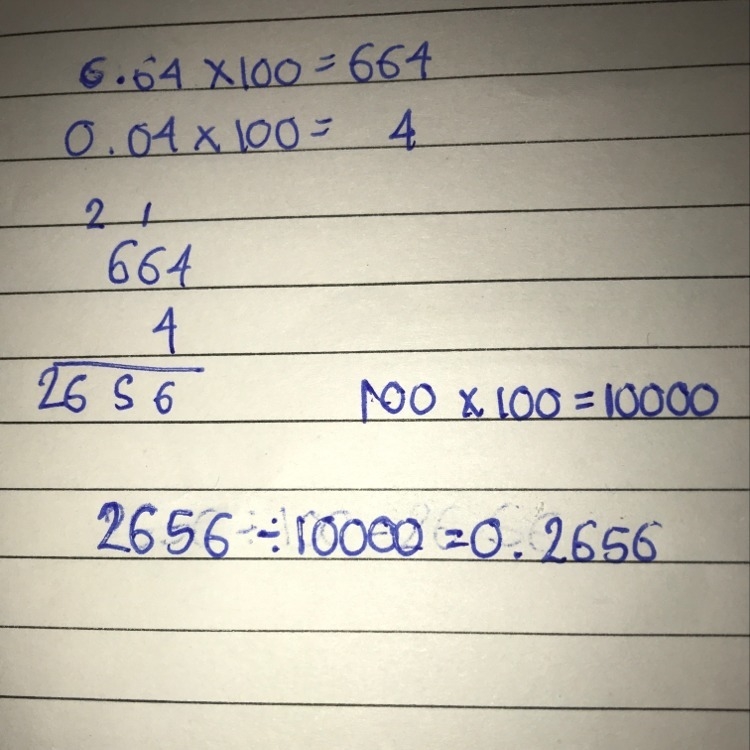 6.64 ×100 = 664
0.04 × 100 = 4
2 1
664
4
2656
100 × 100 = 10000
2656 ÷ 10000 = 0.2656